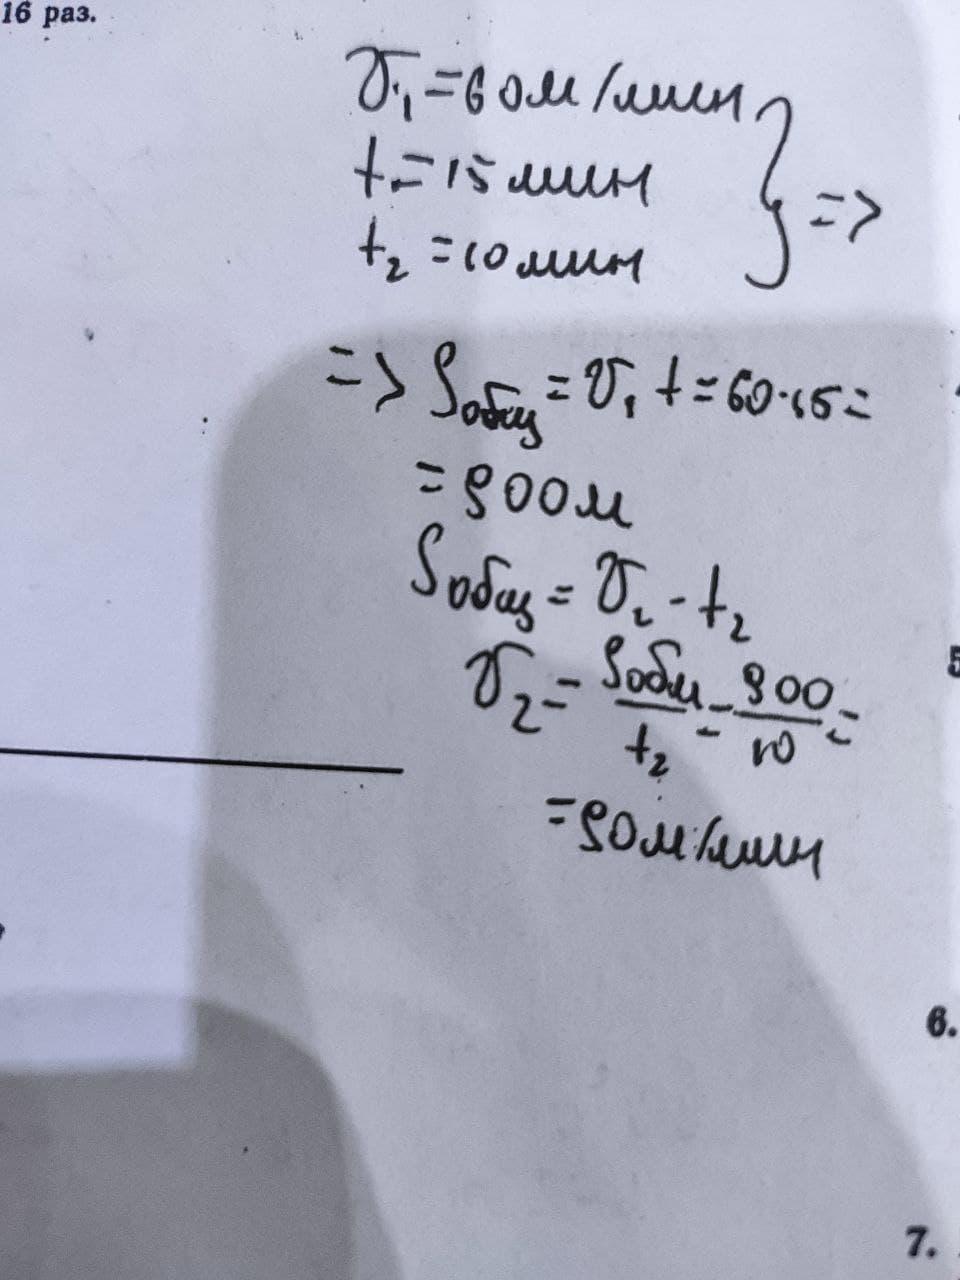 16 раз.
V₁ = 60м/мин
t = 15 мин
t₂ = 10 мин
} =>
=> Sобщ = V₁ t = 60·15 =
= 900м
Sобщ = V₂ · t₂
V₂ = Sобщ/t₂ = 900/10 =
= 90м/мин
5
6.
7.